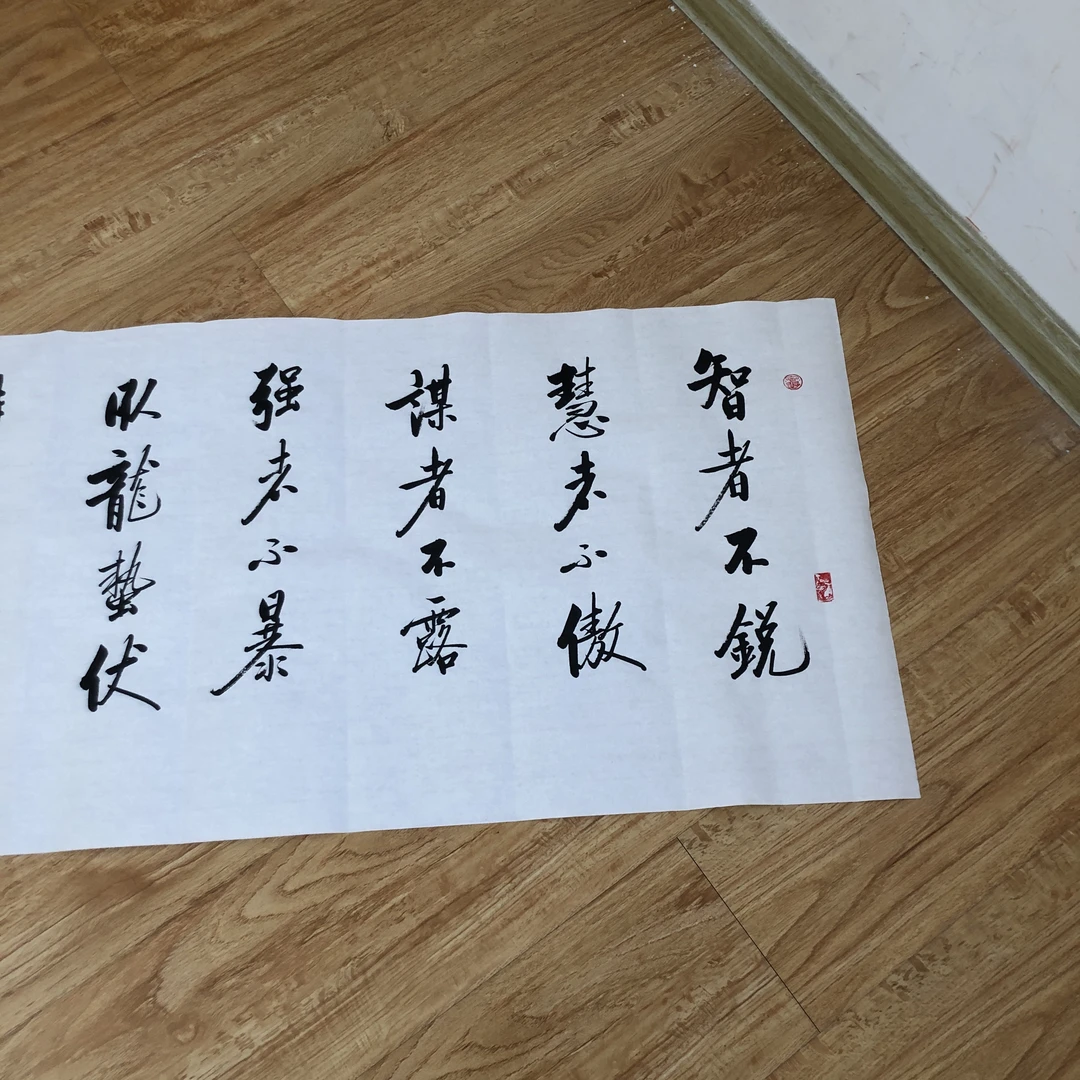 智者不鋭
慧者不傲
謀者不露
强者不暴
臥龍蟄伏